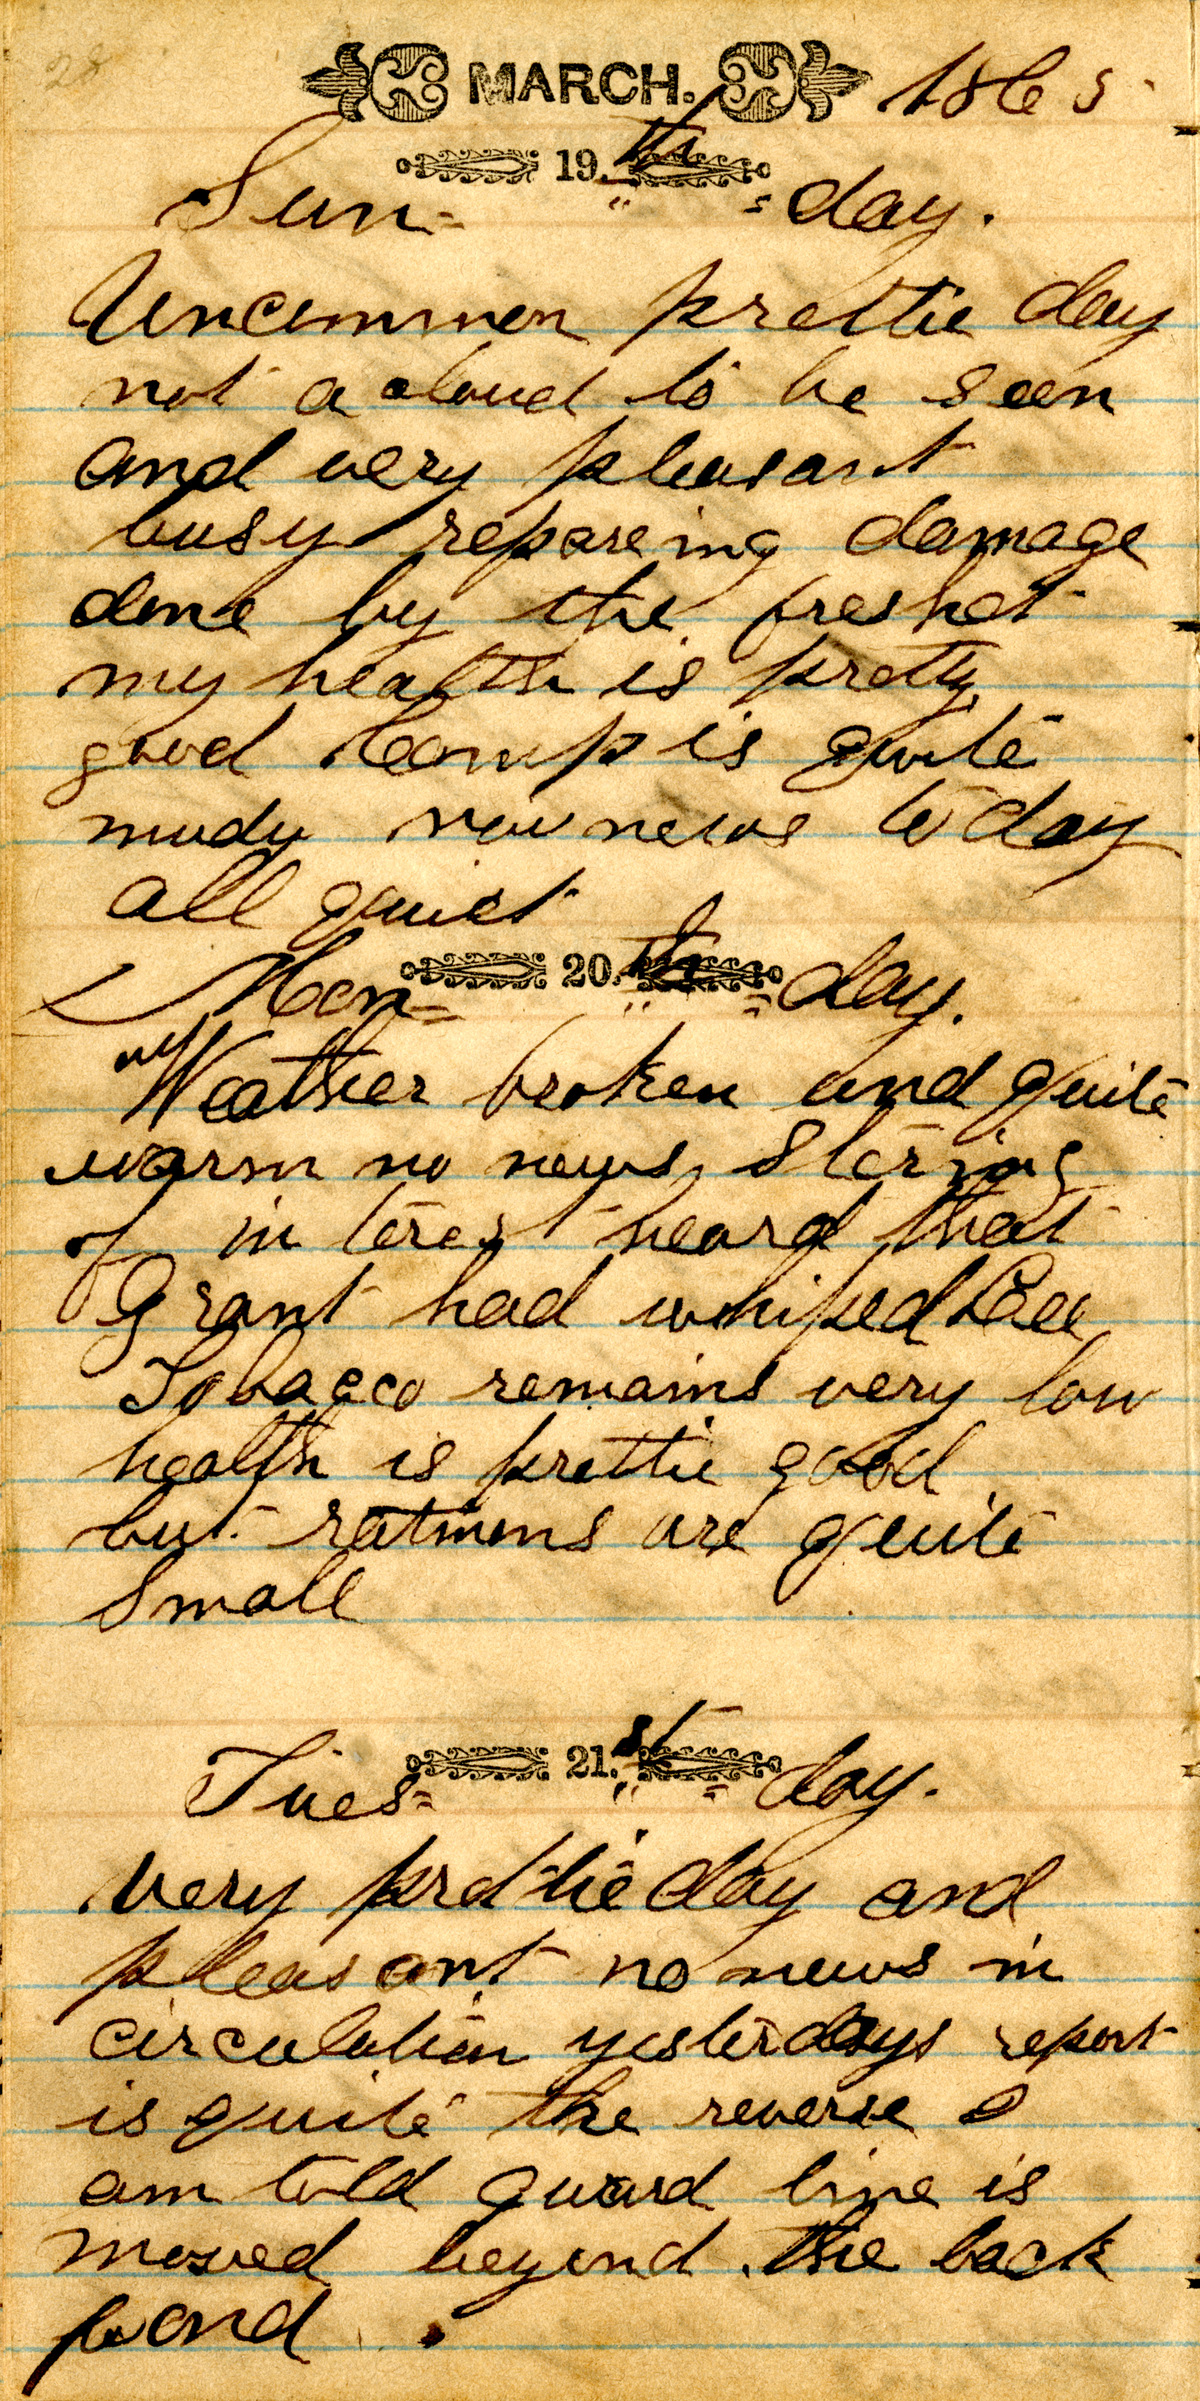 28
MARCH. 1865
19.th
Sun= =day.
Uncommon prettie day
not a cloud to be seen
and very pleasant
busy repareing damage
done by the freshet
my health is pretty
good Camp is quite
mudy now news to day
all quiet
20.th
Mon= =day.
Weather broken and quite
warm no news stering
of interest heard that
Grant had whiped Lee
Tobacco remains very low
health is prettie good
but rations are quite
small
21.st
Tues= =day.
very prettie day and
pleasant no news in
circulation yesterdays report
is quite the reverse I
am told guard line is
moved beyond the back
pond.